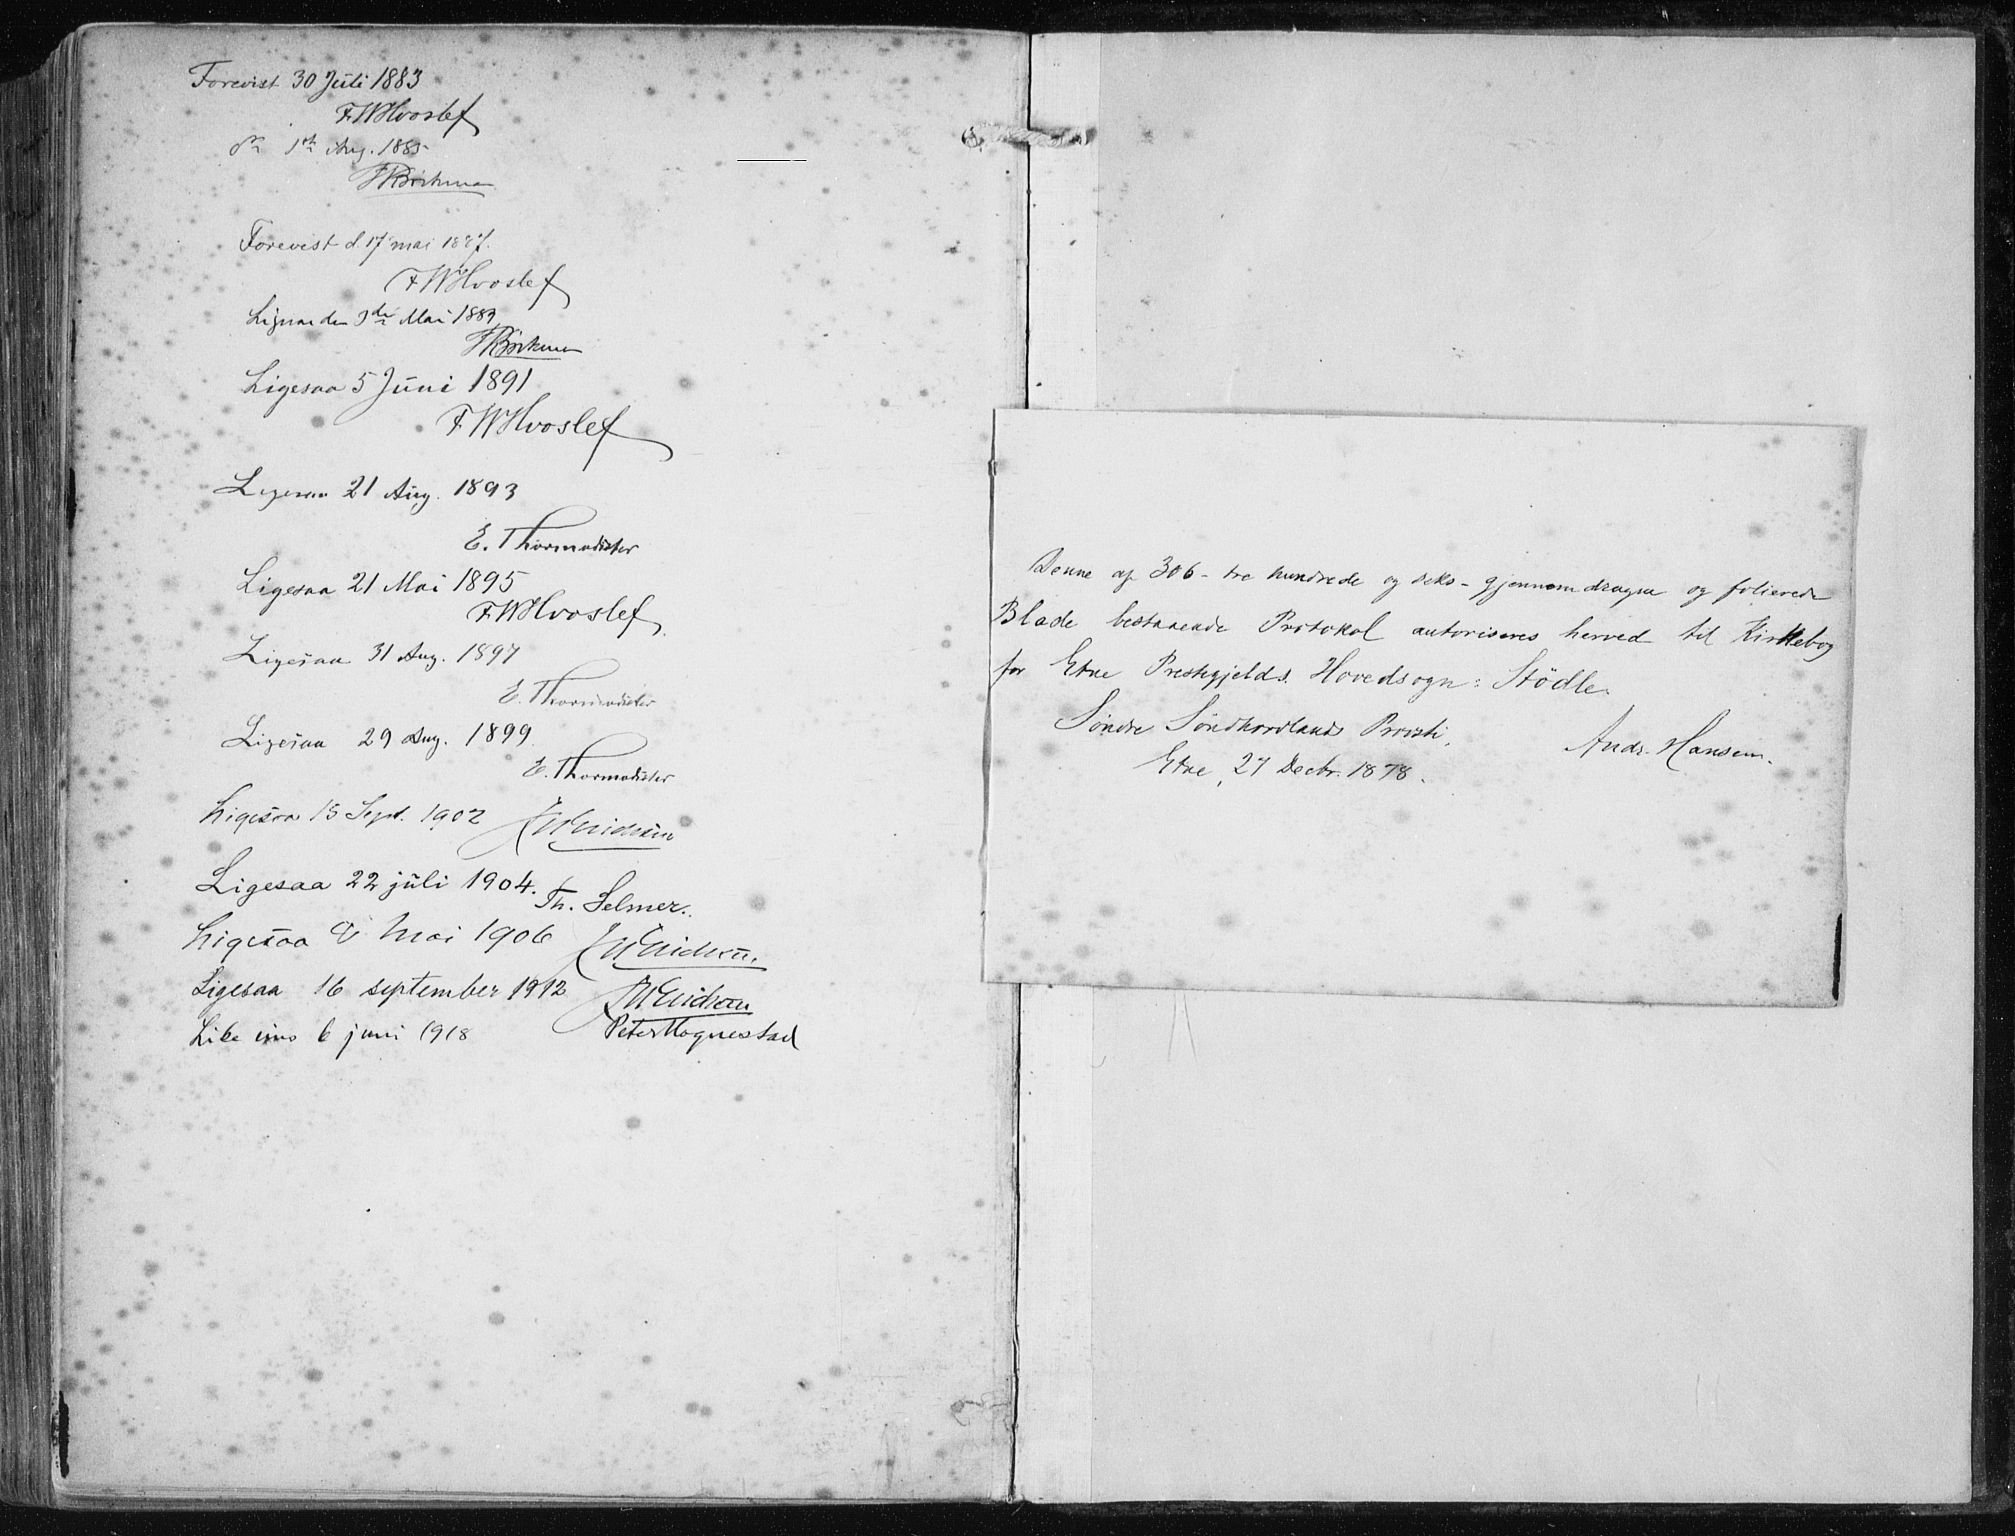 Forevist 30 Juli 1883
F.W.Hvoslef
do 1ste Aug. 1885
Forevist d. 17 mai 1887.
F.W.Hvoslef
den 3die Mai 1889
Ligesaa 5 Juni 1891
F.W.Hvoslef
Ligesaa 21 Aug. 1893
E. Thormodsæter
Ligesaa 21 Mai 1895
F.W.Hvoslef.
Ligesaa 31 Aug. 1897
E. Thormodsæter
Ligesaa 29 Aug. 1899
E. Thormodsæter
Ligesaa 15 Sept. 1902
Ligesaa 22 juli 1904. Th. Selmer.
Ligesaa 8 Mai 1906
Ligesaa 16 september 1912
Like eins 6 juni 1918 Peter Hognestad
Denne af 306 - tre hundrede og seks - gjennemdragne og folierede
Blade bestaaende Protokol autoriseres herved til Kirkebog
for Etne Prestegjelds Hovedsogn: Stödle.
Søndre Søndhordlands Provsti, Andr. Hansen.
Etne, 27 Decbr. 1878.